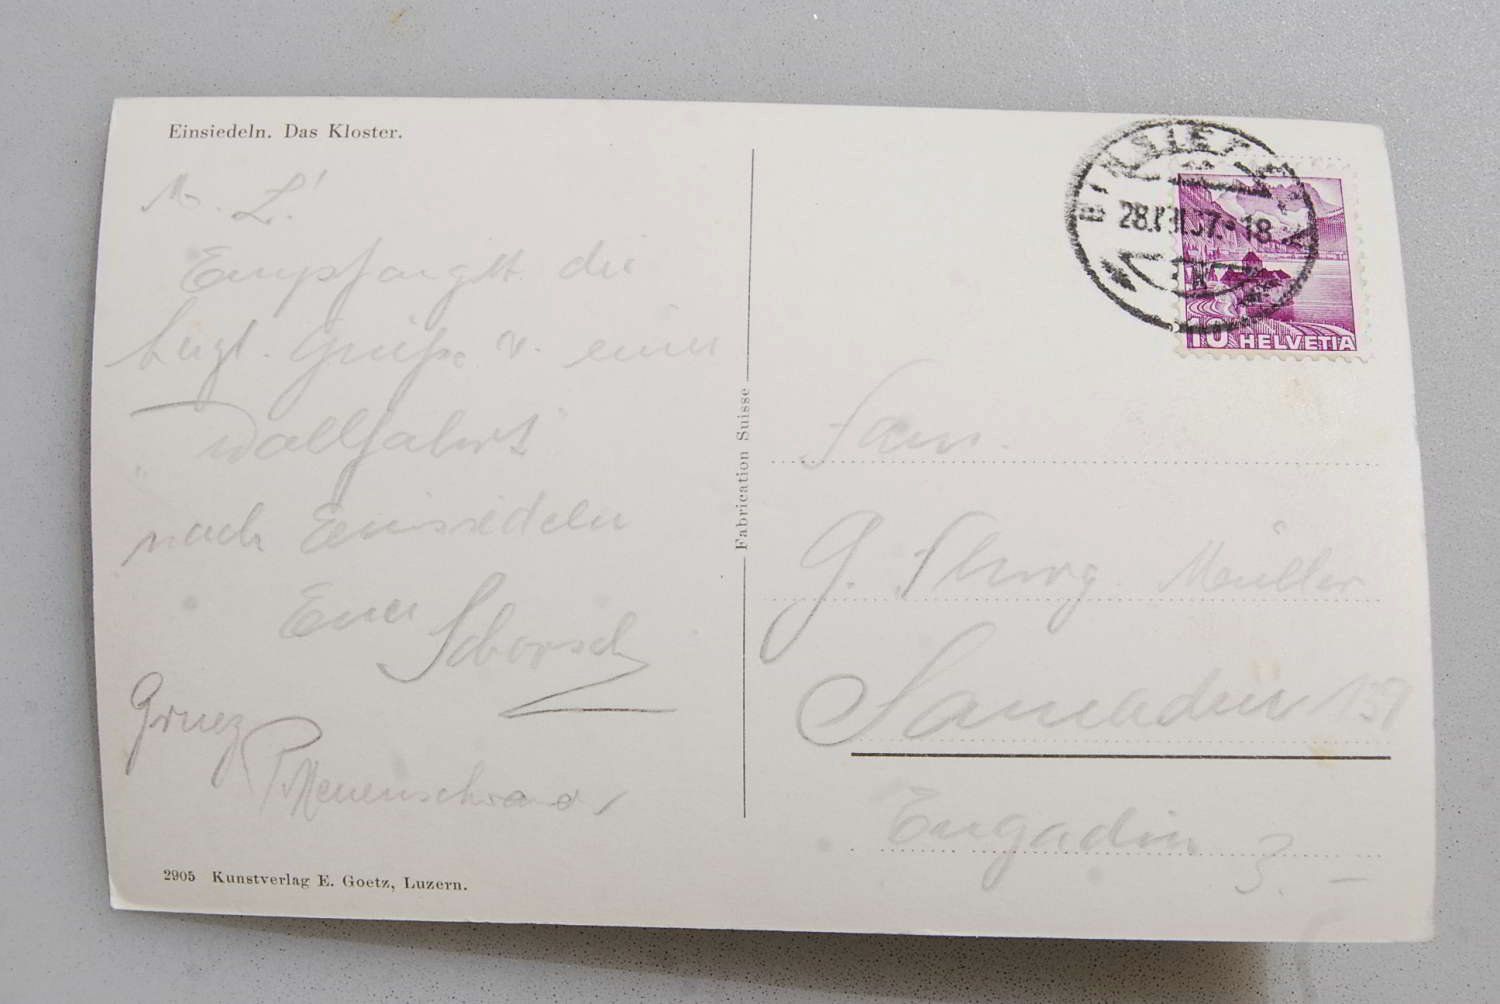 Einsiedeln. Das Kloster.
M. L!
Empfanget die
herzl. Grüsse v. einer
"Wallfahrt"
nach Einsiedeln
Euer Schorsch
Gruez
2905 Kunstverlag E. Goetz, Luzern.
Fabrication Suisse
28.VIII.37.-18
10 HELVETIA
Fam.
G. Müller
Samaden 139
Engadin